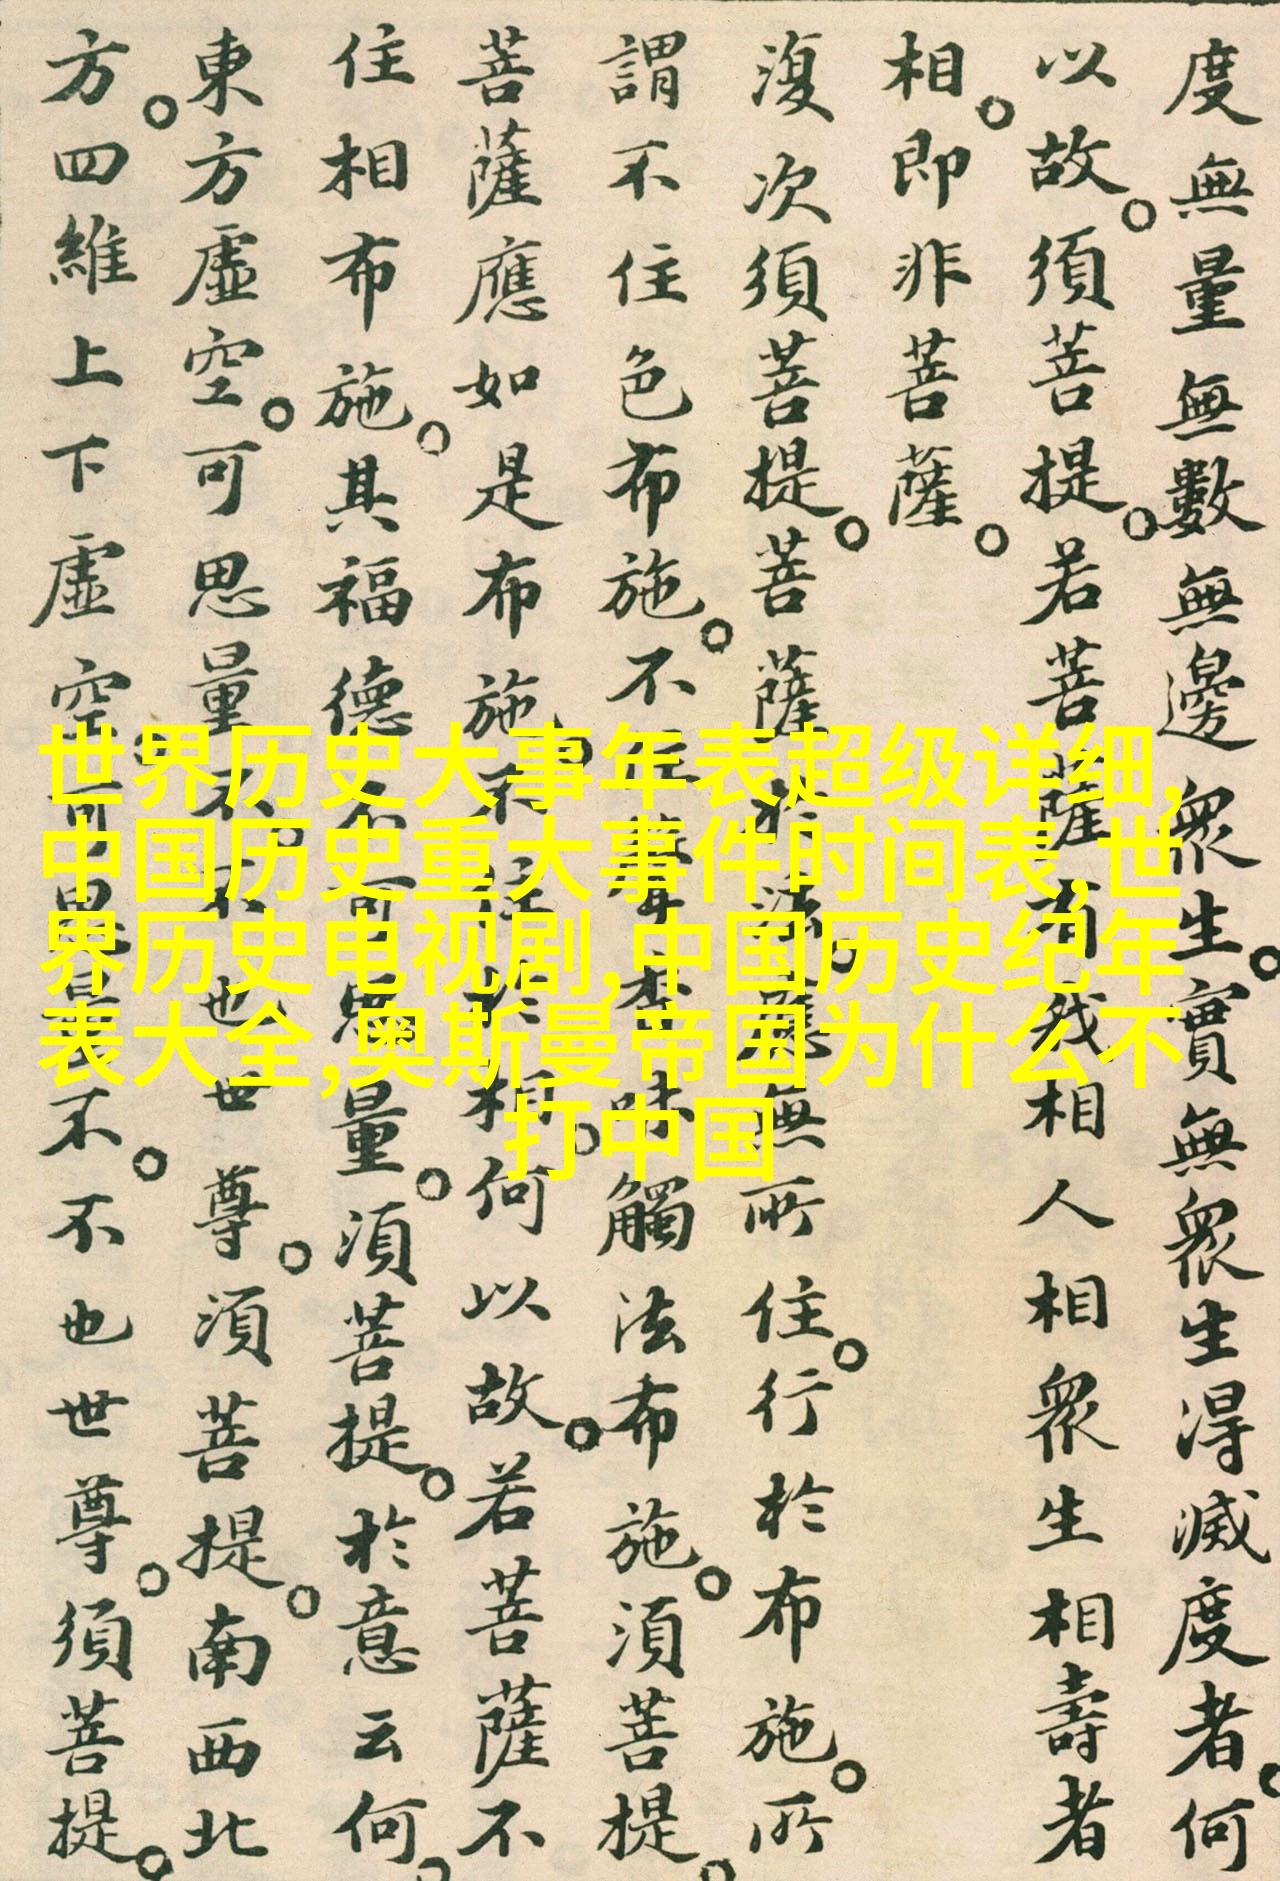 度無量無數無邊眾生。實無眾生得滅度者。何
以故。須菩提。若菩薩有我相人相眾生相壽者
相。即非菩薩。
復次須菩提。菩薩於法。應無所住。行於布施。所
謂不住色布施。不住聲香味觸法布施。須菩提。
菩薩應如是布施。不住於相。何以故。若菩薩不
住相布施。其福德不可思量。須菩提。於意云何。
東方虛空。可思量不。不也世尊。須菩提。南西北
方。四維上下虛空。可思量不。不也世尊。須菩提。
世界历史大事年表超级详细,
中国历史重大事件时间表,世
界历史电视剧,中国历史纪年
表大全,奥斯曼帝国为什么不
打中国